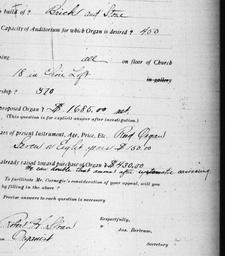 is built of ? Bricks and Stone
Capacity of Auditorium for which Organ is desired ? 400
all on floor of Church
18 in Choir Loft in gallery
370
proposed Organ ? $1685.00 net.
(This question is for explicit answer after investigation.)
of present Instrument, Age, Price, Etc. Reed Organ
Seven or Eight years $150.00
already raised toward purchase of Organ ? $430.00
We can double that amount after systematic canvassing
To facilitate Mr. Carnegie's consideration of your appeal, will you
by filling in the above ?
Precise answers to each question is necessary.
Respectfully,
Robert H. Sloan
Jas. Bertram,
Organist
Secretary